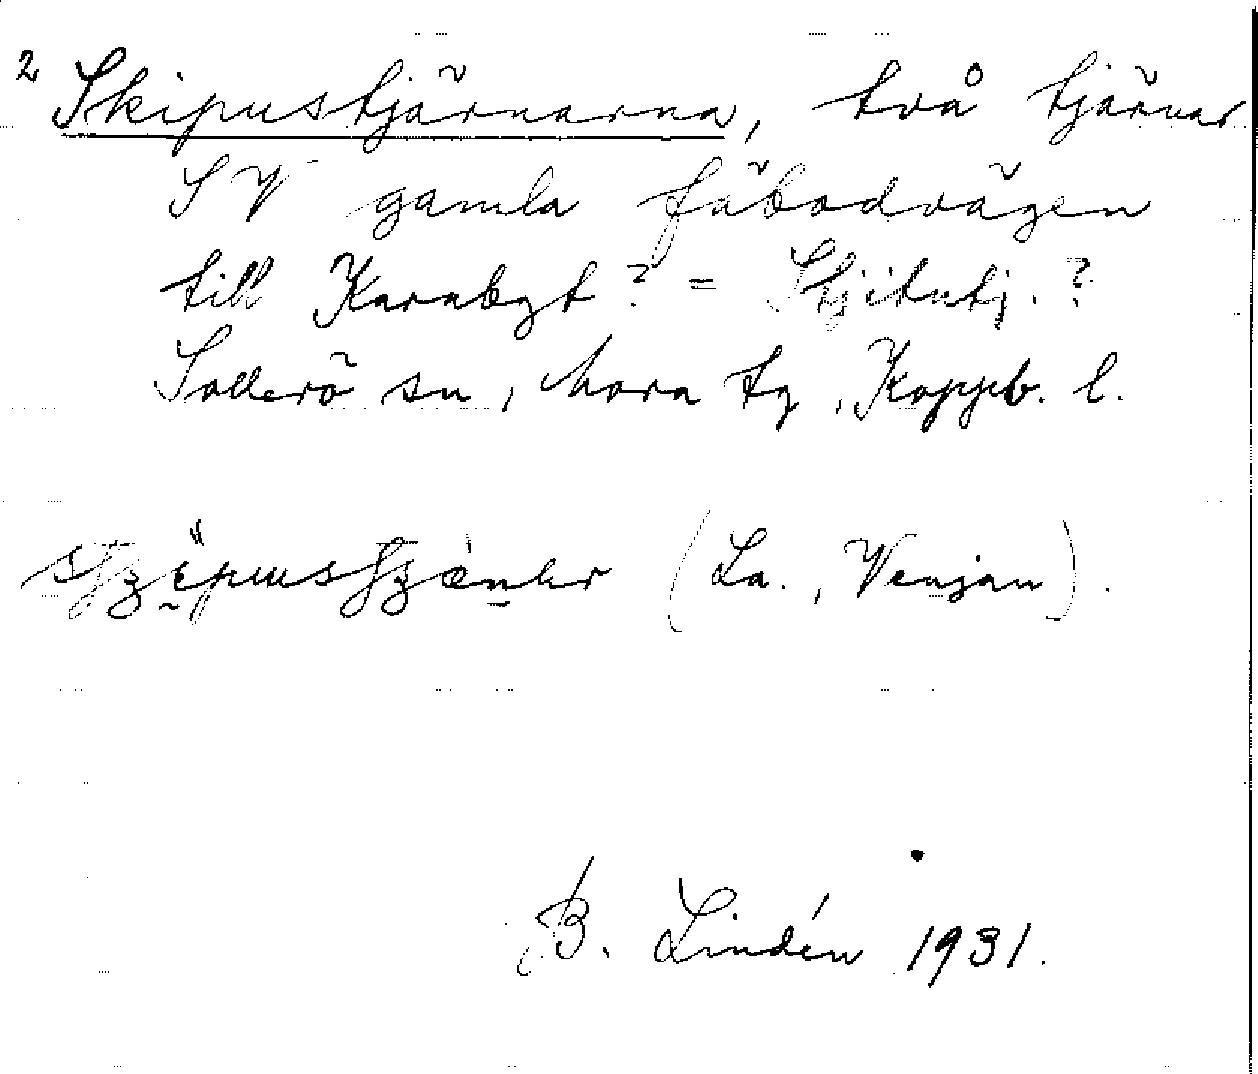 2 Skipustjärnarna, två tjärnar
SV gamla fäbodvägen
till Karabyt? = Stjitutj.?
Sollerö sn, Mora tg, Koppb. l.
(La., Venjan).
B. Lindén 1931.